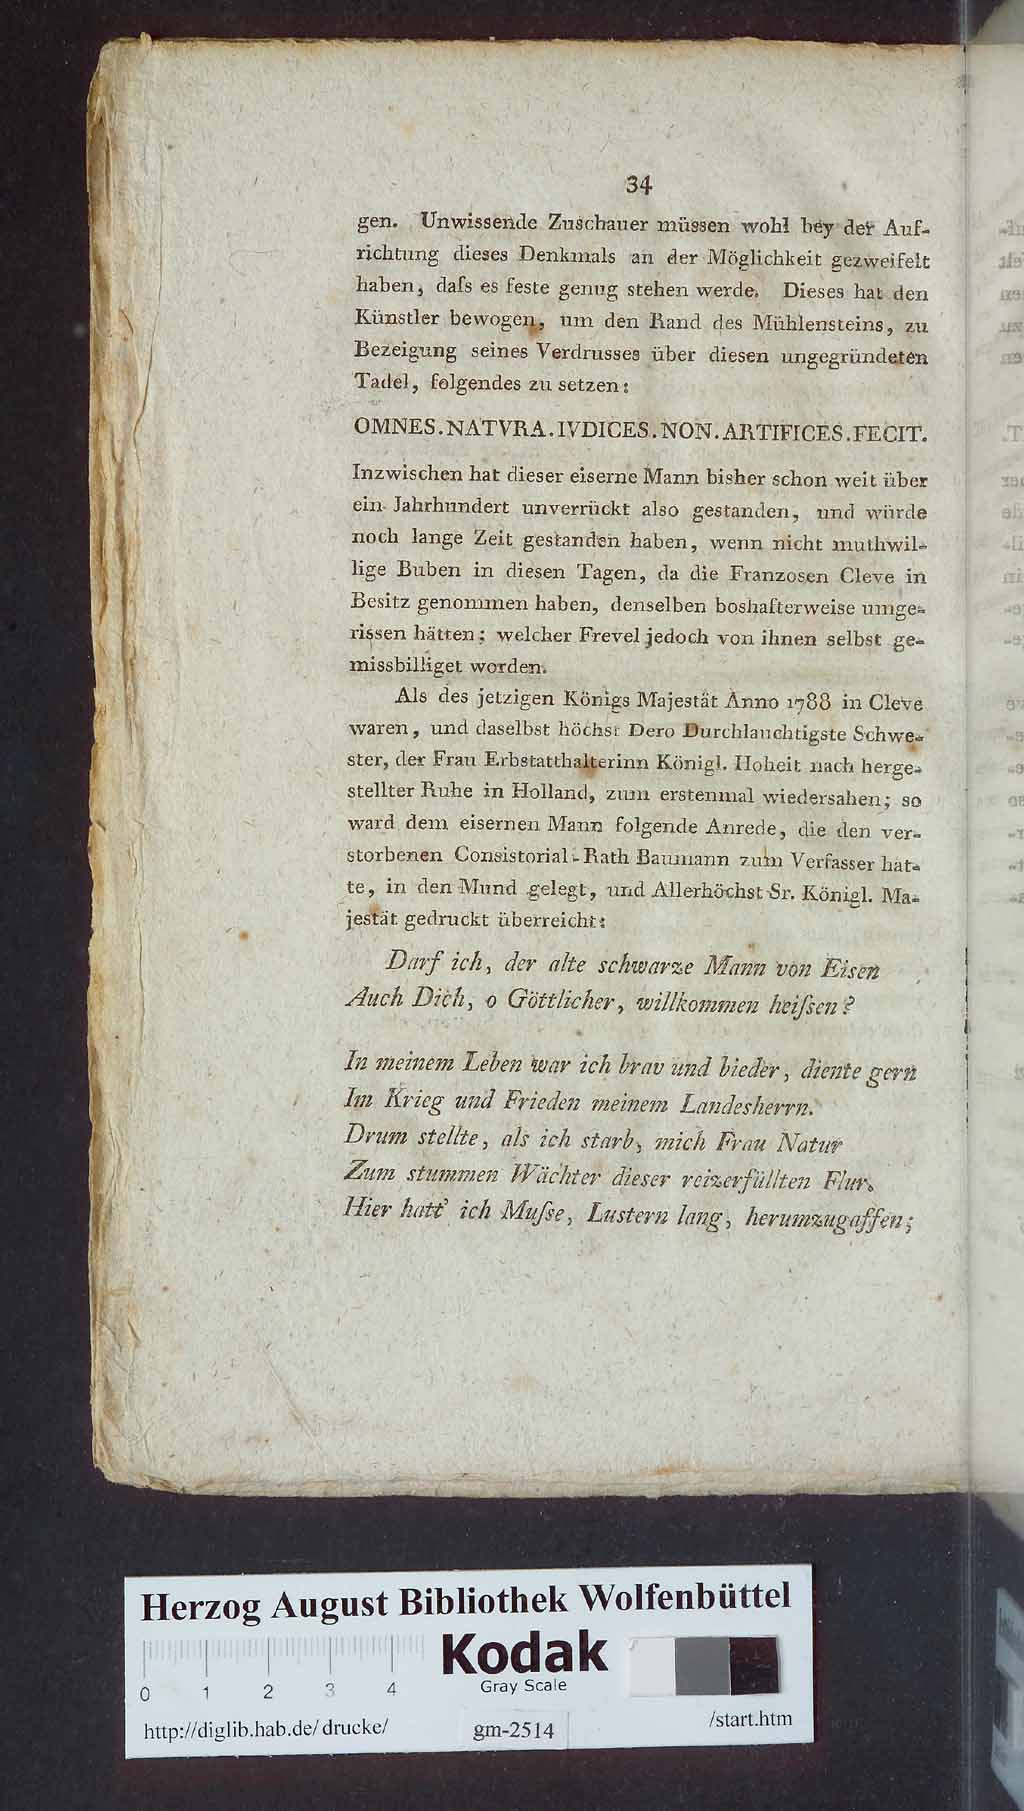 34
gen. Unwissende Zuschauer müssen wohl bey der Auf-
richtung dieses Denkmals an der Möglichkeit gezweifelt
haben, daſs es feste genug stehen werde. Dieses hat den
Künstler bewogen, um den Rand des Mühlensteins, zu
Bezeigung seines Verdrusses über diesen ungegründeten
Tadel, folgendes zu setzen:
OMNES.NATVRA.IVDICES.NON.ARTIFICES.FECIT.
Inzwischen hat dieser eiserne Mann bisher schon weit über
ein Jahrhundert unverrückt also gestanden, und würde
noch lange Zeit gestanden haben, wenn nicht muthwil-
lige Buben in diesen Tagen, da die Franzosen Cleve in
Besitz genommen haben, denselben boshafterweise umge-
rissen hätten; welcher Frevel jedoch von ihnen selbst ge-
missbilliget worden.
Als des jetzigen Königs Majestät Anno 1788 in Cleve
waren, und daselbst höchst Dero Durchlauchtigste Schwe-
ster, der Frau Erbstatthalterinn Königl. Hoheit nach herge-
stellter Ruhe in Holland, zum erstenmal wiedersahen; so
ward dem eisernen Mann folgende Anrede, die den ver-
storbenen Consistorial-Rath Baumann zum Verfasser hat-
te, in den Mund gelegt, und Allerhöchst Sr. Königl. Ma-
jestät gedruckt überreicht:
Darf ich, der alte schwarze Mann von Eisen
Auch Dich, o Göttlicher, willkommen heiſsen?
In meinem Leben war ich brav und bieder, diente gern
Im Krieg und Frieden meinem Landesherrn.
Drum stellte, als ich starb, mich Frau Natur
Zum stummen Wächter dieser reizerfüllten Flur.
Hier hatt' ich Muſse, Lustern lang, herumzugaffen;
Herzog August Bibliothek Wolfenbüttel
Kodak
Gray Scale
0 1 2 3 4
http://diglib.hab.de/drucke/ gm-2514 /start.htm